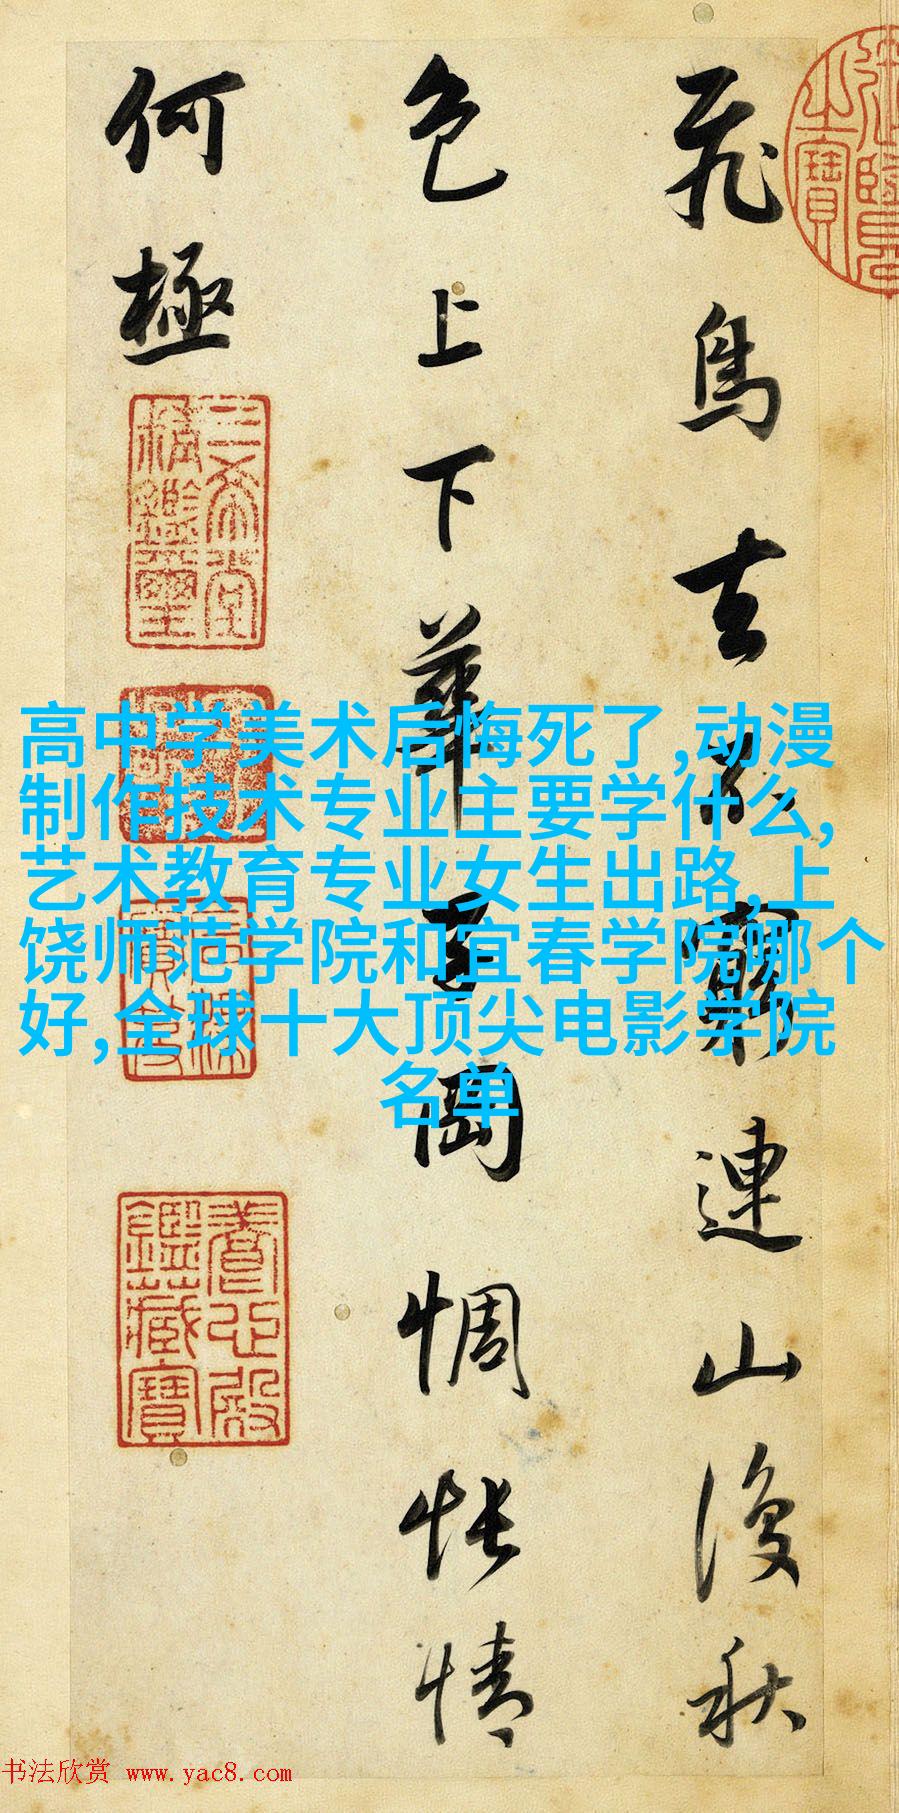 飛鳥去不窮連山復秋
色上下華子岡惆悵情
何極
三希堂
精鑑璽
養心殿
鑑藏寶
高中学美术后悔死了,动漫
制作技术专业主要学什么,
艺术教育专业女生出路,上
饶师范学院和宜春学院哪个
好,全球十大顶尖电影学院
名单
书法欣赏 www.yac8.com